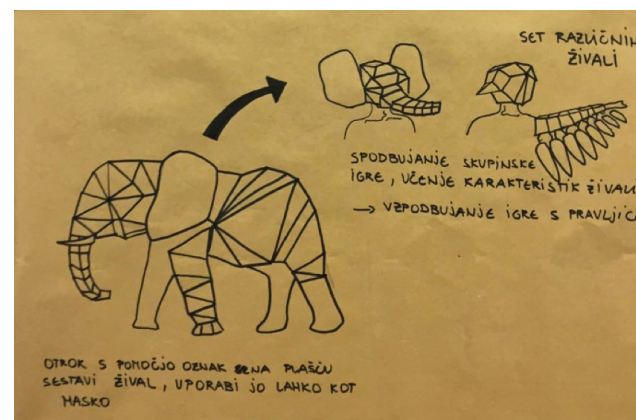 SET RAZLIČNIH
ŽIVALI
SPODBUJANJE SKUPINSKE
IGRE, UČENJE KARAKTERISTIK ŽIVALI
→ VZPODBUJANJE IGRE S PRAVLJIC
OTROK S POMOČJO OZNAK NA PLAŠČU
SESTAVI ŽIVAL, UPORABI JO LAHKO KOT
MASKO